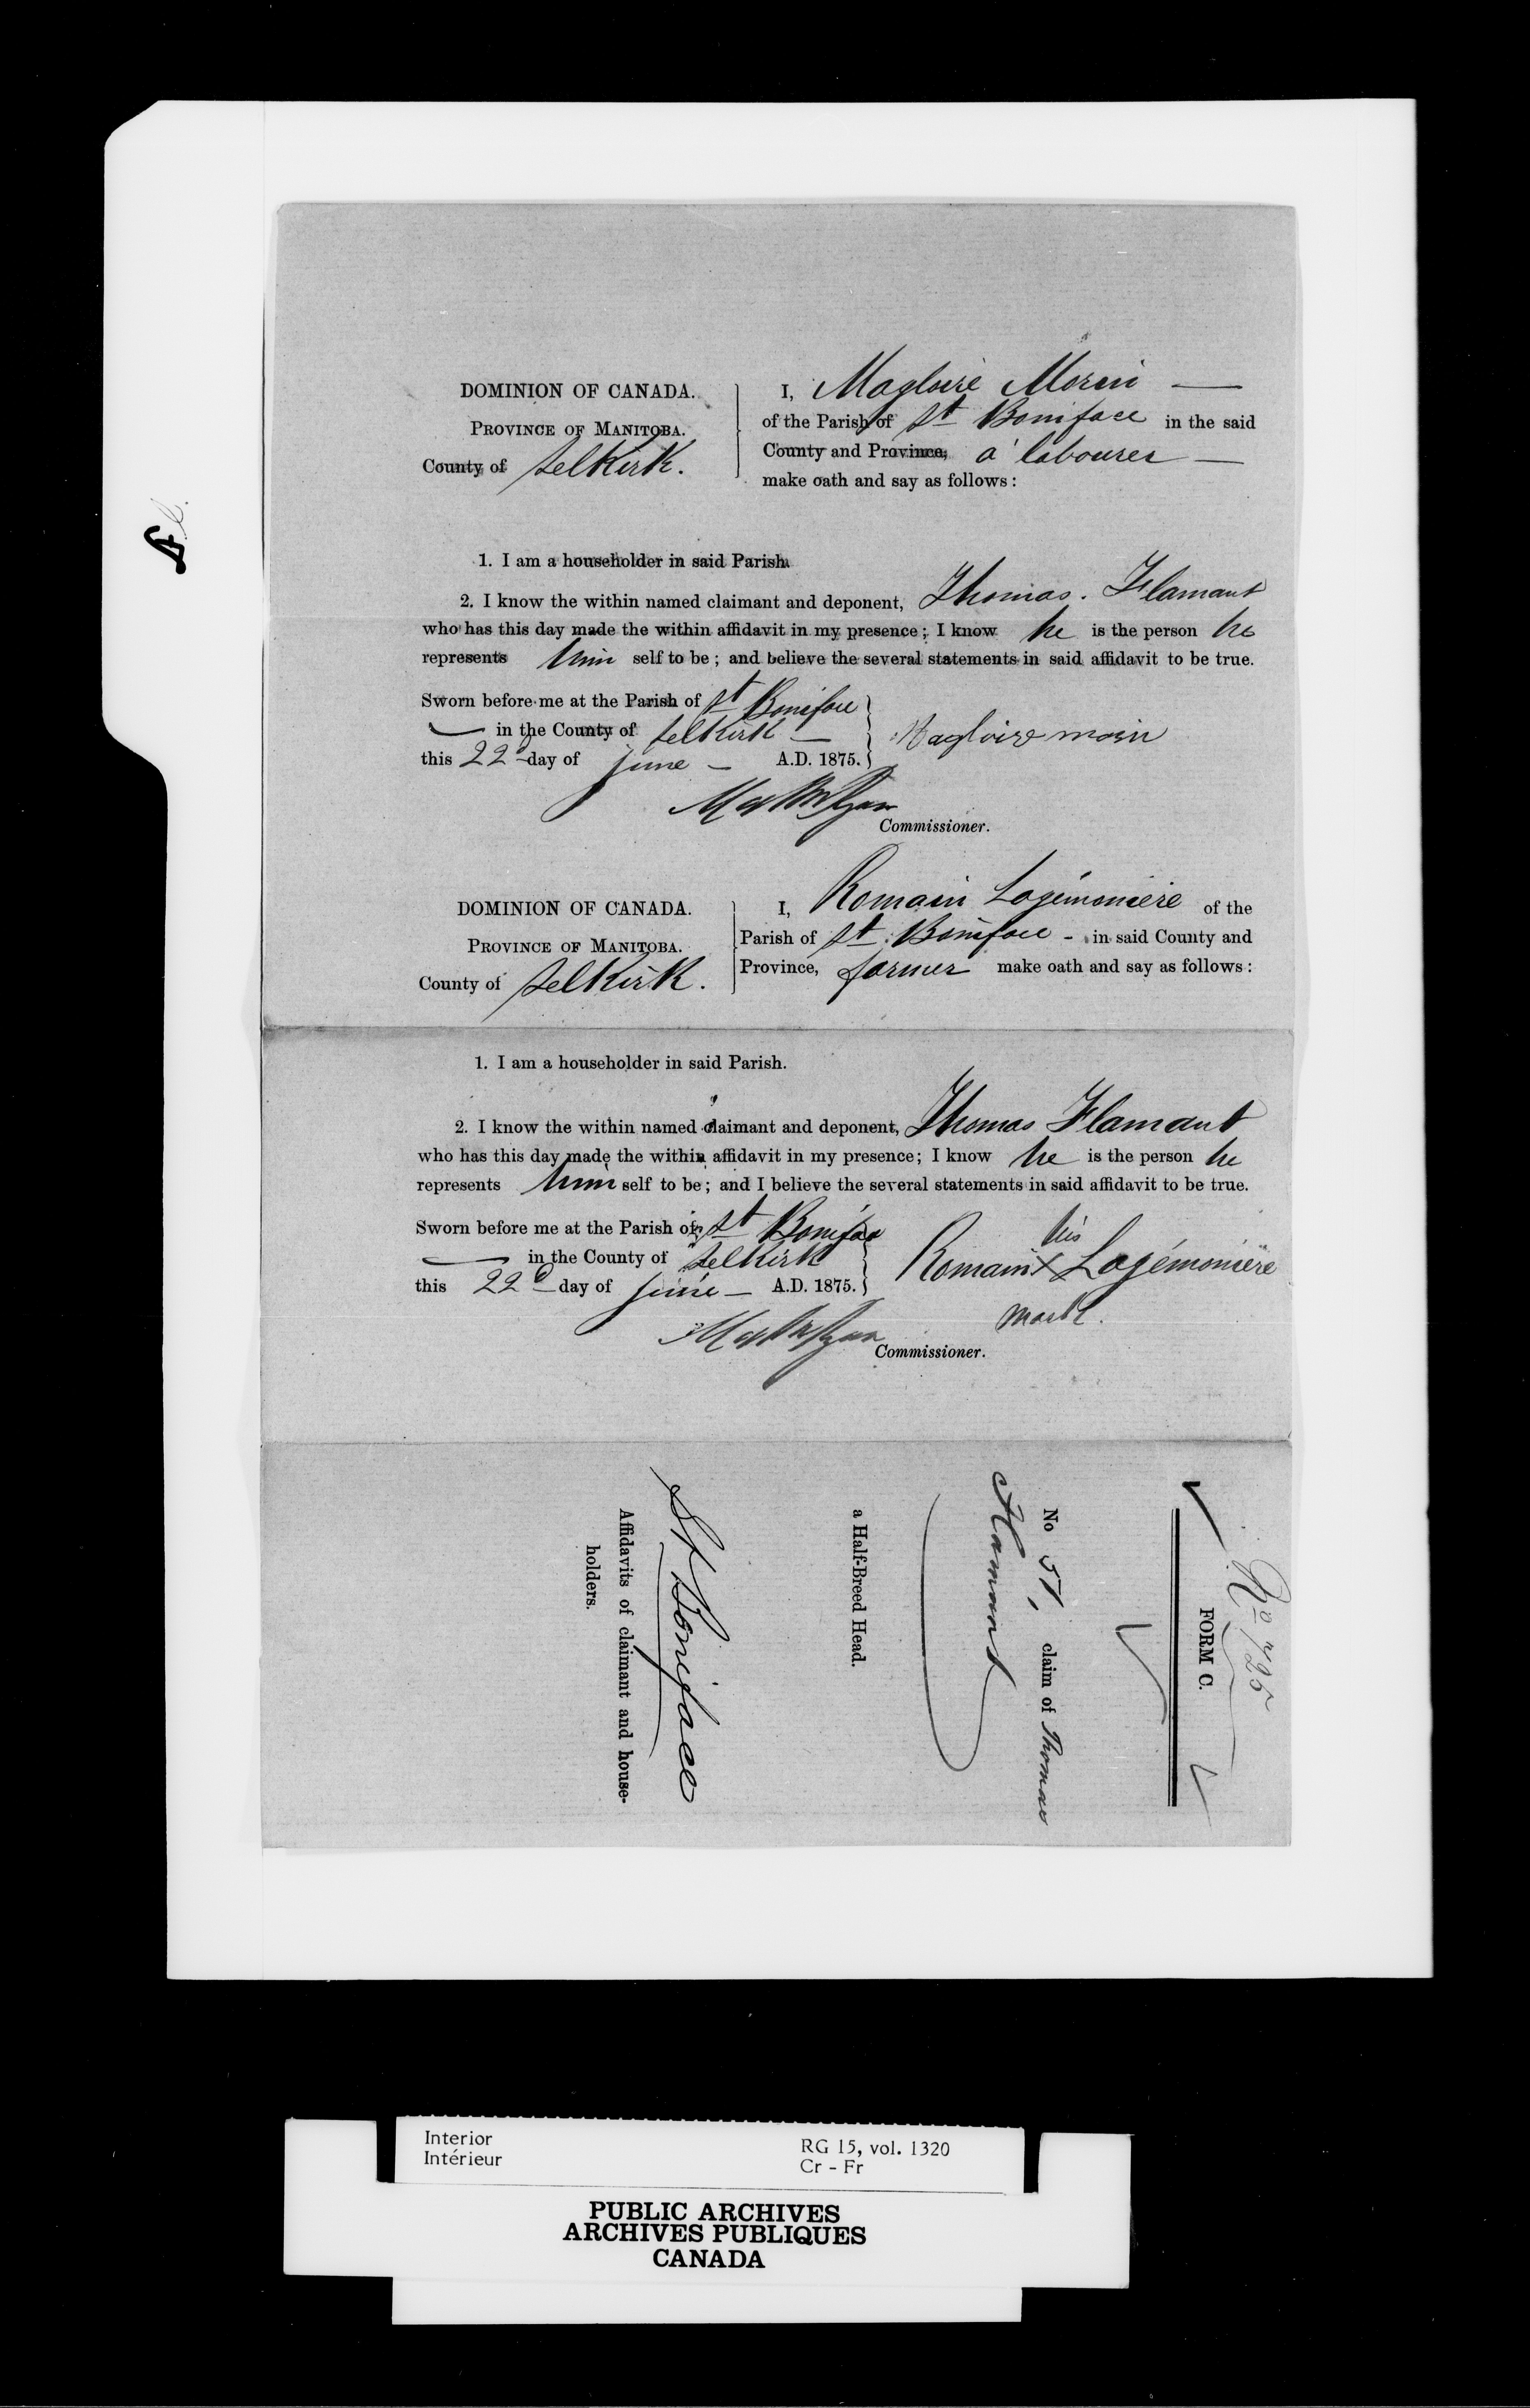 DOMINION OF CANADA.
PROVINCE OF MANITOBA.
County of Selkirk.
I, Magloire Morin —
of the Parish of St Boniface in the said
County and Province, a labourer —
make oath and say as follows:
1. I am a householder in said Parish.
2. I know the within named claimant and deponent, Thomas. Flamant
who has this day made the within affidavit in my presence; I know he is the person he
represents him self to be; and believe the several statements in said affidavit to be true.
Sworn before me at the Parish of St Boniface
— in the County of Selkirk —
this 22d day of June — A.D. 1875.
Magloire morin
Commissioner.
DOMINION OF CANADA.
PROVINCE OF MANITOBA.
County of Selkirk.
I, Romain Lagémonière of the
Parish of St. Boniface - in said County and
Province, farmer make oath and say as follows:
1. I am a householder in said Parish.
2. I know the within named claimant and deponent, Thomas Flamant
who has this day made the within affidavit in my presence; I know he is the person he
represents him self to be; and I believe the several statements in said affidavit to be true.
Sworn before me at the Parish of St Boniface
— in the County of Selkirk
this 22d day of June — A.D. 1875.
his
Romain X Lagémonière
mark.
Commissioner.
FORM C.
No 51, claim of Thomas
Flamant
a Half-Breed Head.
St Boniface
Affidavits of claimant and house-
holders.
Interior
Intérieur
RG 15, vol. 1320
Cr - Fr
PUBLIC ARCHIVES
ARCHIVES PUBLIQUES
CANADA